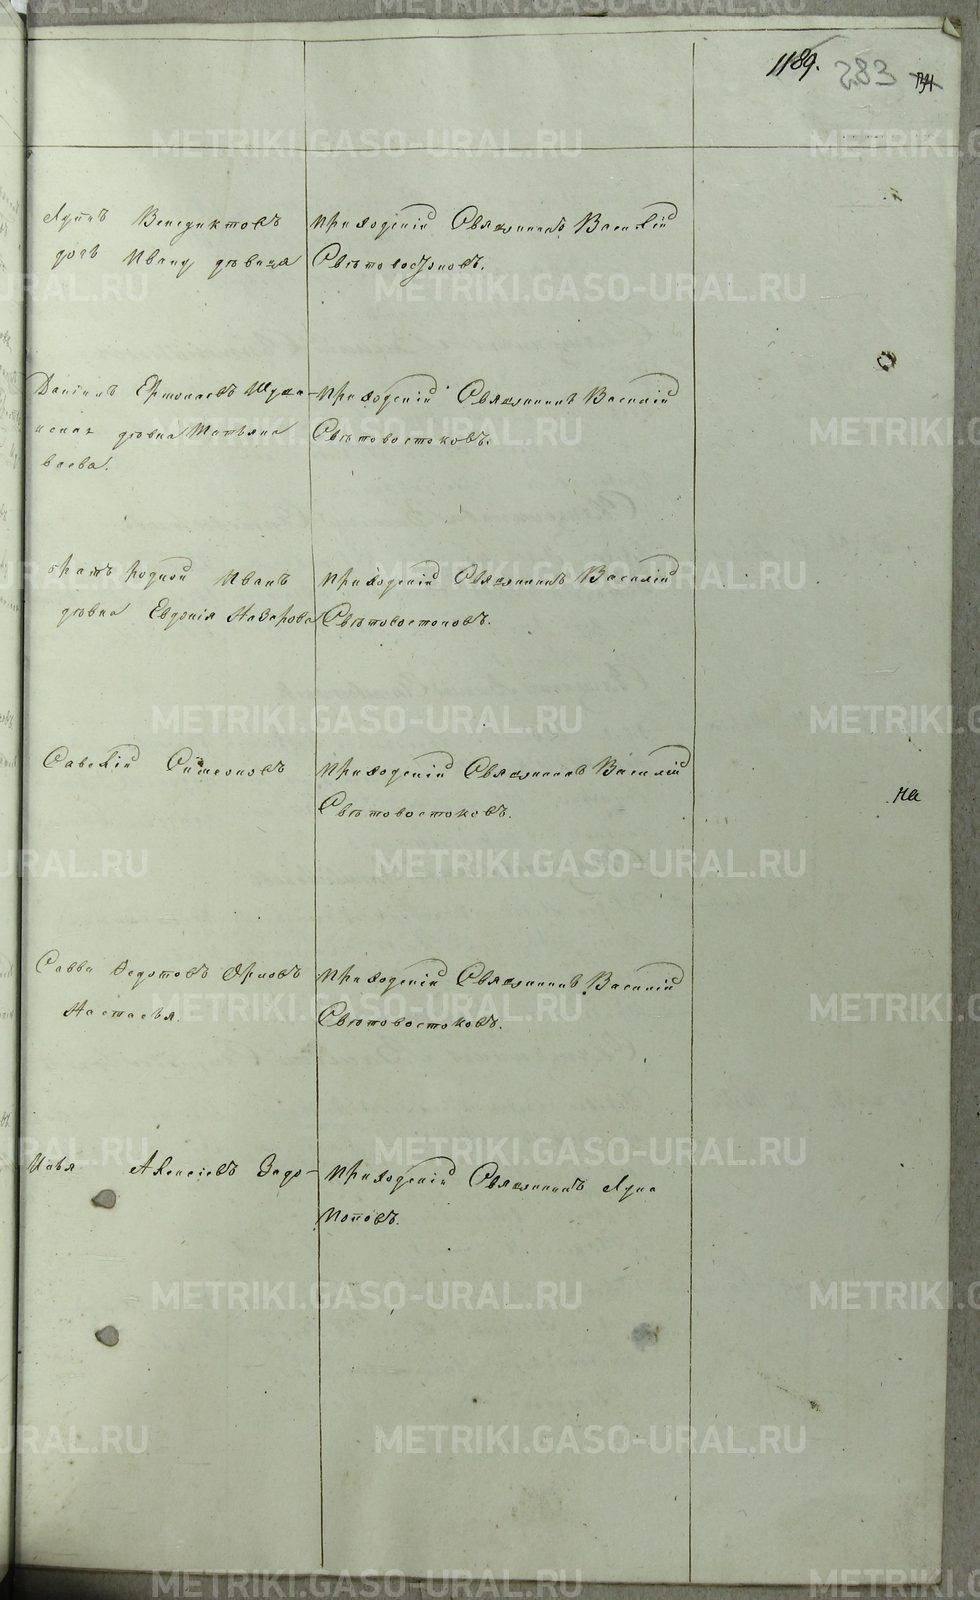 1189. 283
Лупъ Венедиктовъ
дочь Ивану девица
Приходский Священникъ Василий
Световостоковъ.
Данiилъ Ермолаевъ
девка Татьяна
ваева.
Приходский Священникъ Василий
Световостоковъ.
братъ родной Иванъ
девка Евдокiя Назарова
Приходский Священникъ Василий
Световостоковъ.
Савелiй Симеоновъ
Приходский Священникъ Василий
Световостоковъ.
на
Савва Федотовъ
Настасья.
Приходский Священникъ Василий
Световостоковъ.
Илья Алексiевъ Задо-
Приходский Священникъ Лука
Поповъ.
METRIKI.GASO-URAL.RU